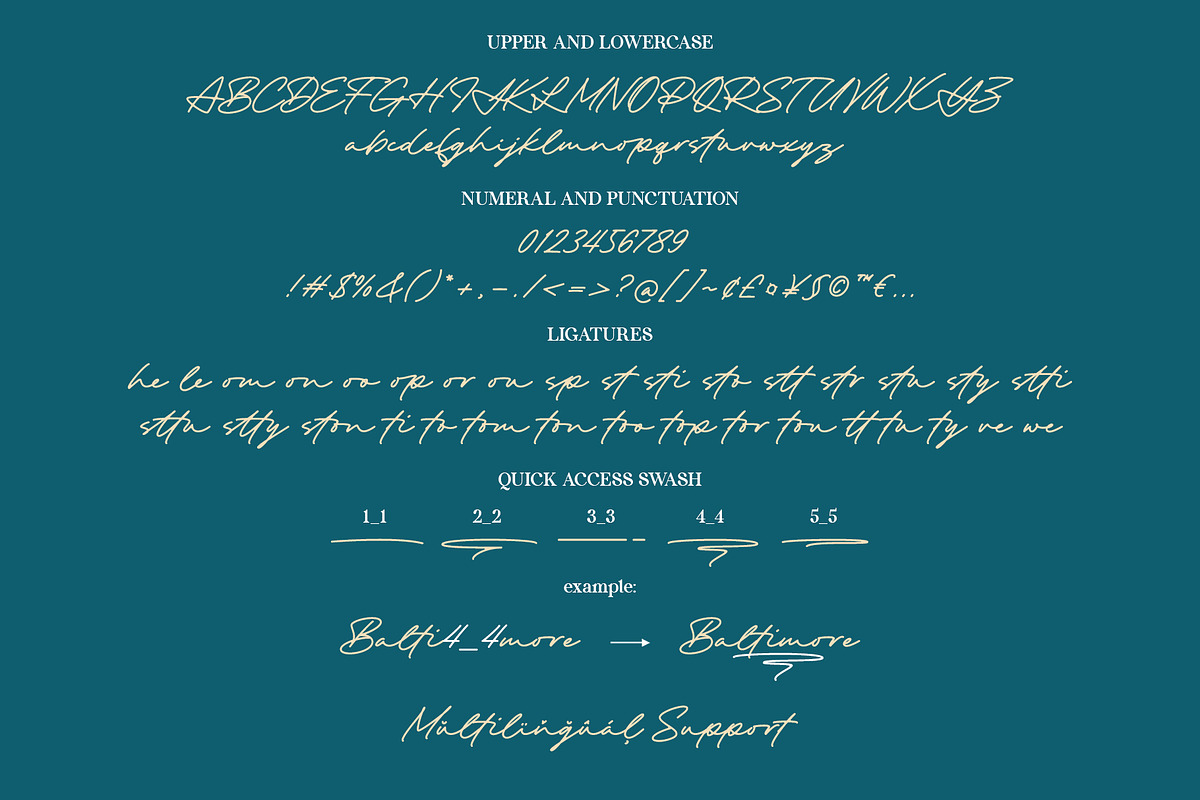 UPPER AND LOWERCASE
ABCDEFGHIJKLMNOPQRSTUVWXYZ
abcdefghijklmnopqrstuvwxyz
NUMERAL AND PUNCTUATION
0123456789
!#$%&()*+,-./<=>?@[]~¢£¤¥§©™€...
LIGATURES
he le om on oo op or ou sp st sti sto stt str stu sty stti
sttu stty ston ti to tom ton too top tor tou tt tu ty ve we
QUICK ACCESS SWASH
1_1 2_2 3_3 4_4 5_5
example:
Balti4_4more → Baltimore
Mŭltilïňğûáļ Support